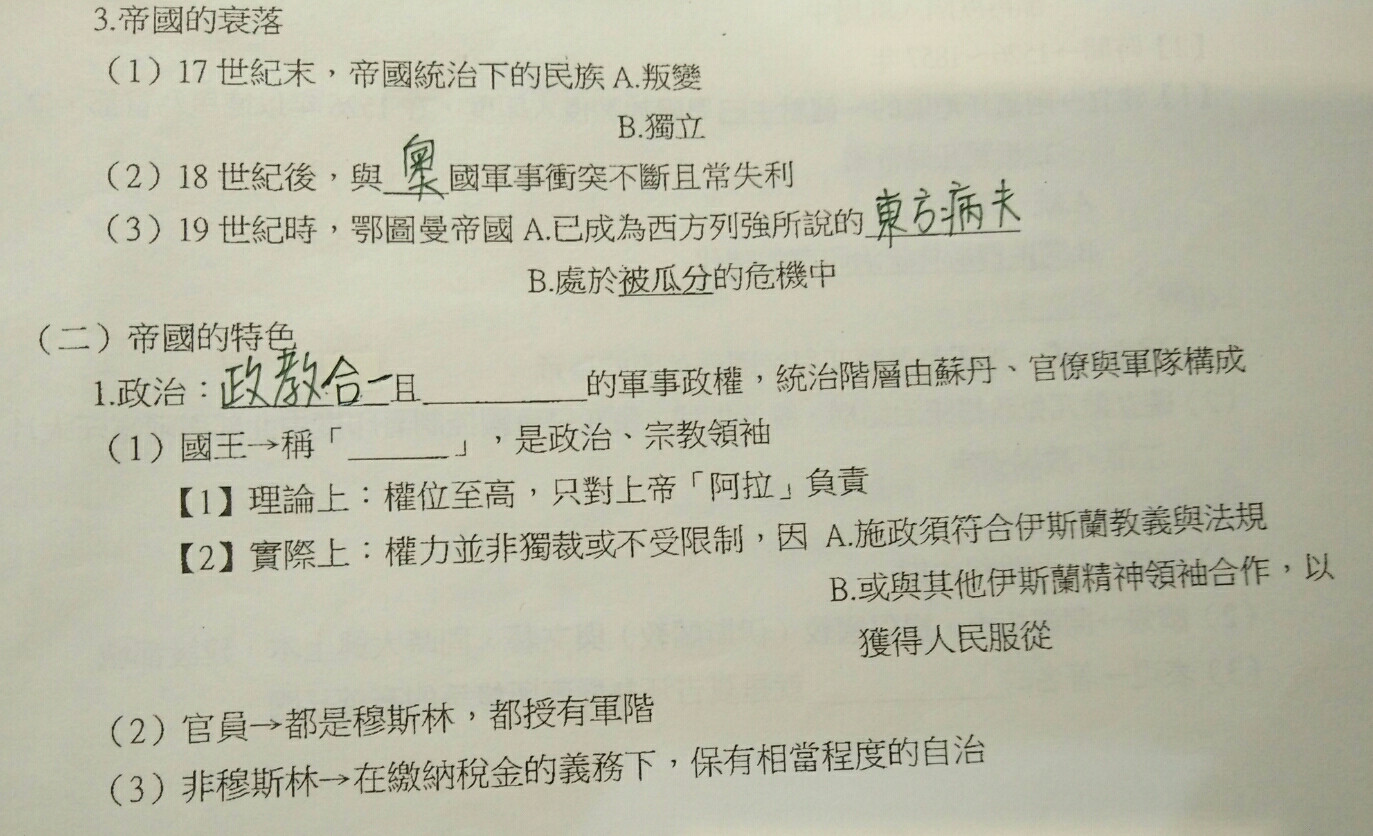 3.帝國的衰落
（1）17 世紀末，帝國統治下的民族 A.叛變
B.獨立
（2）18 世紀後，與奧國軍事衝突不斷且常失利
（3）19 世紀時，鄂圖曼帝國 A.已成為西方列強所說的東方病夫
B.處於被瓜分的危機中
（二）帝國的特色
1.政治：政教合一且__________的軍事政權，統治階層由蘇丹、官僚與軍隊構成
（1）國王→稱「______」，是政治、宗教領袖
【1】理論上：權位至高，只對上帝「阿拉」負責
【2】實際上：權力並非獨裁或不受限制，因 A.施政須符合伊斯蘭教義與法規
B.或與其他伊斯蘭精神領袖合作，以
獲得人民服從
（2）官員→都是穆斯林，都授有軍階
（3）非穆斯林→在繳納稅金的義務下，保有相當程度的自治